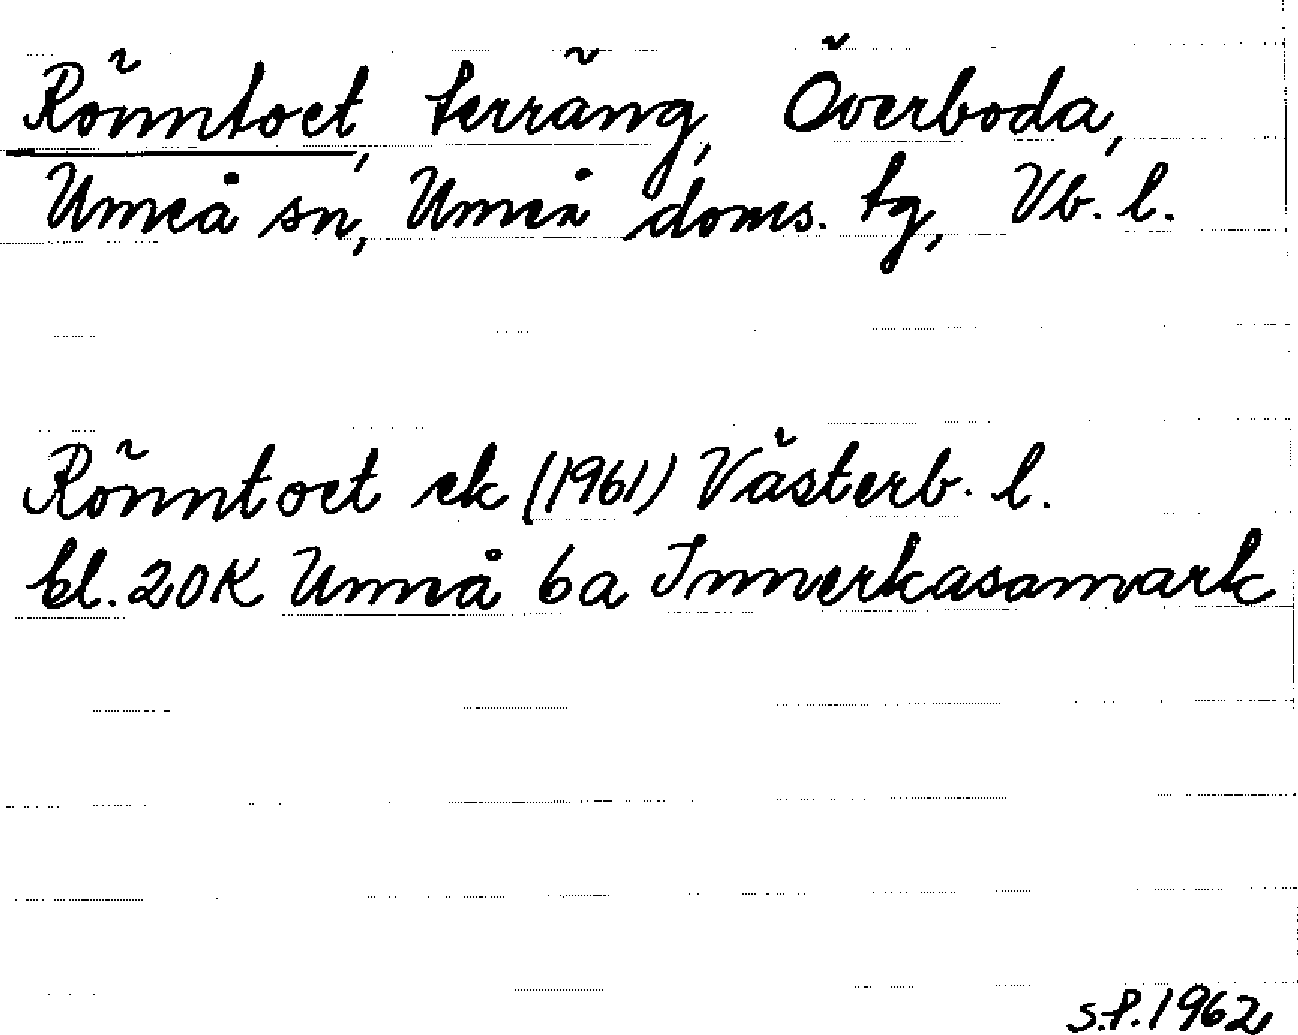 Rönntoet, terräng, Överboda,
Umeå sn, Umeå doms. tg, Vb. l.
Rönntoet ek (1961) Västerb. l.
bl. 20K Umeå 6a Innerkasamark
S.P. 1962